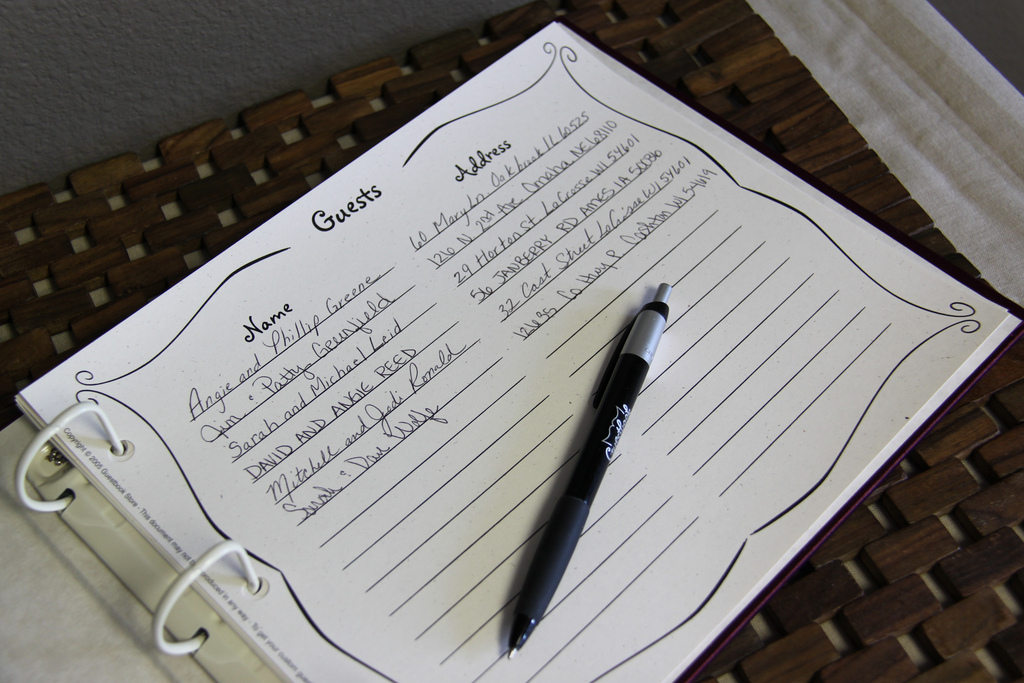 Guests
Name Address
Angie and Phillip Greene 60 Mary Ln Oakbrook IL 60525
Jim & Patty Greenfield 1216 N 2nd Ave Omaha NE 68110
Sarah and Michael Leid 29 Horton St LaCrosse WI 54601
DAVID AND ANGIE REED 516 JANBERRY RD AMES, IA
Mitchell and Jodi Ronald 32 Cast Street LaCrosse WI 54601
Sarah & Dave Wolfe Co Hwy P WI
Copyright © 2005 Guestbook Store - This document may not be in any way. - To get your custom